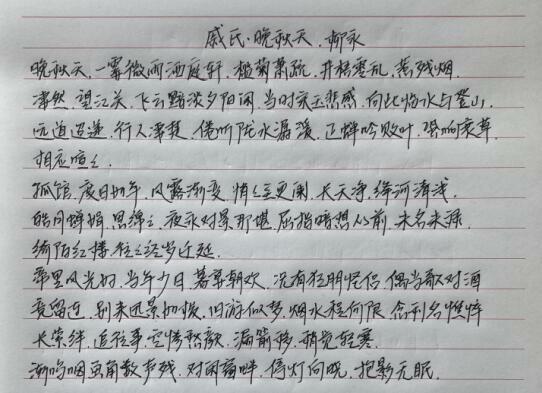 戚氏·晚秋天.柳永
晚秋天.一霎微雨洒庭轩.槛菊萧疏.井梧零乱.惹残烟.
凄然.望江关.飞云黯淡夕阳闲.当时宋玉悲感.向此临水与登山.
远道迢递.行人凄楚.倦听陇水潺湲.正蝉吟败叶.蛩响衰草.
相应喧喧.
孤馆.度日如年.风露渐变.悄悄至更阑.长天净.绛河清浅.
皓月婵娟.思绵绵.夜永对景那堪.屈指暗想从前.未名未禄.
绮陌红楼.往往经岁迁延.
帝里风光好.当年少日.暮宴朝欢.况有狂朋怪侣.偶当歌对酒
竞留连.别来迅景如梭.旧游似梦.烟水程何限.念利名憔悴
长萦绊.追往事.空惨愁颜.漏箭移.稍觉轻寒.
渐呜咽画角数声残.对闲窗畔.停灯向晓.抱影无眠.